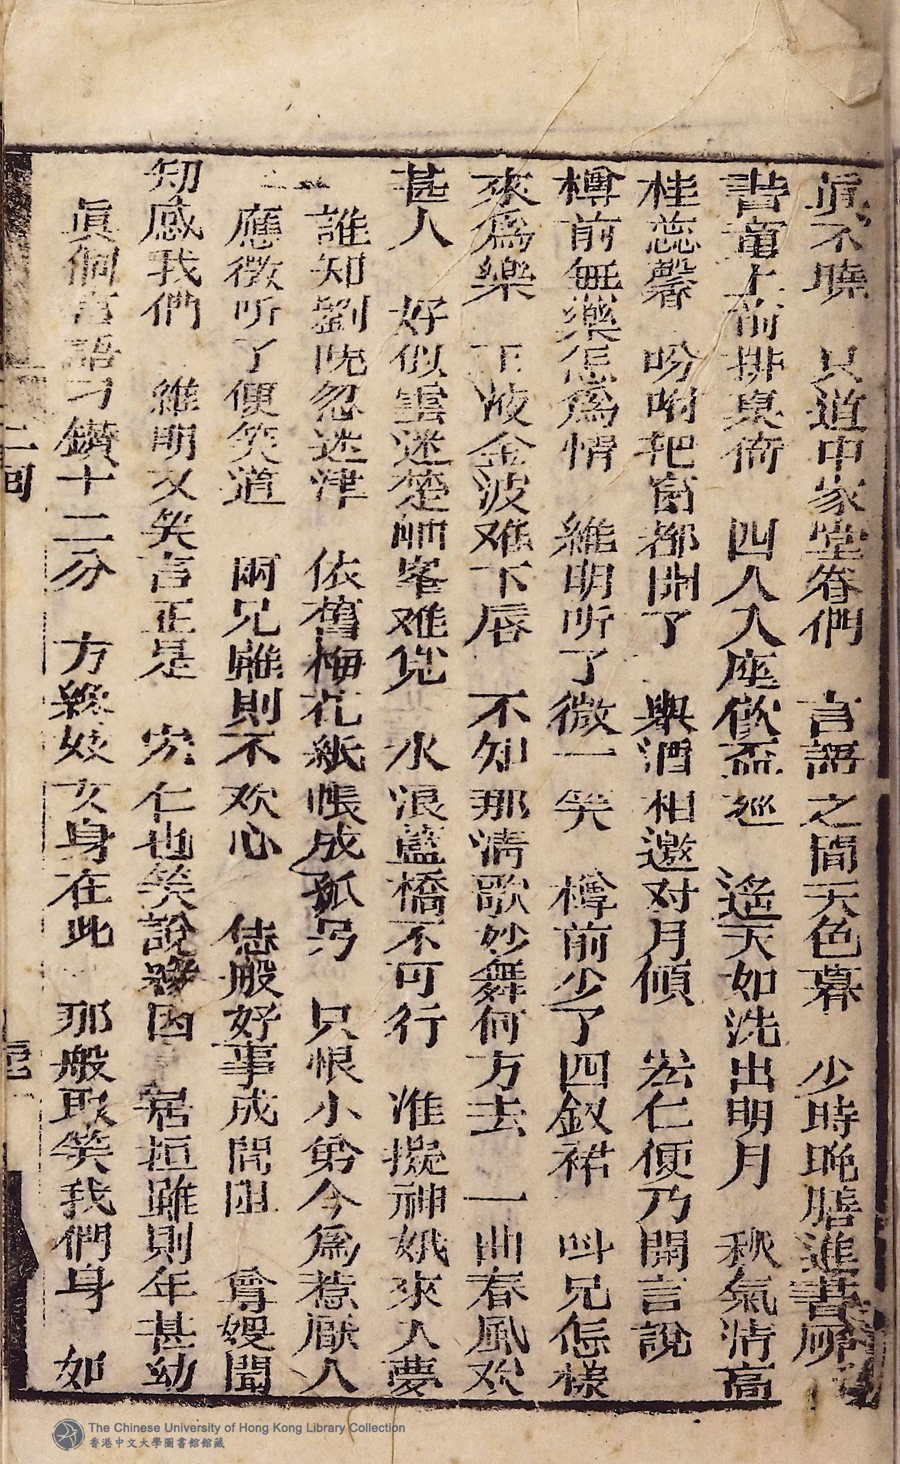 真不曉　只道中家堂眷們　言語之間天色暮　少時晚膳進書房
書童上前排桌倚　四人入座飲盃巡　遙天如洗出明月　秋氣清高
桂蕊馨　吩咐把窗都開了　與酒相邀对月傾　宏仁便乃開言說
樽前無樂怎為情　維明听了微一笑　樽前少了四釵裙　叫兄怎樣
來為樂　玉液金波难下唇　不知那清歌妙舞何方去　一曲春風欢
甚人　好似雲迷楚岫峯难兜　水浪藍橋不可行　准擬神娥來入夢
誰知劉阮忽迷津　依舊梅花紙帳成孤另　只恨小弟今為惹厭人
應徵听了便笑道　兩兄雖則不欢心　恁般好事成間阻　曾嫂聞
知感我們　維明又笑言正是　宏仁也笑說緣因　居垣雖則年甚幼
真個言語刁鑽十二分　方纔妓女身在此　那般取笑我們身　如
二回
The Chinese University of Hong Kong Library Collection
香港中文大學圖書館館藏